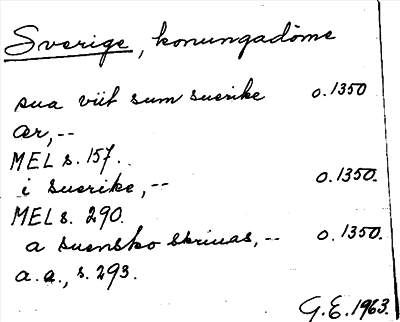 Sverige, konungadöme
sua viit sum suerike o.1350
ær,--
MEL s.157.
i suerike,-- o.1350.
MEL s. 290.
a suensko skriuas,-- o.1350.
a.a., s.293.
G.E.1963.